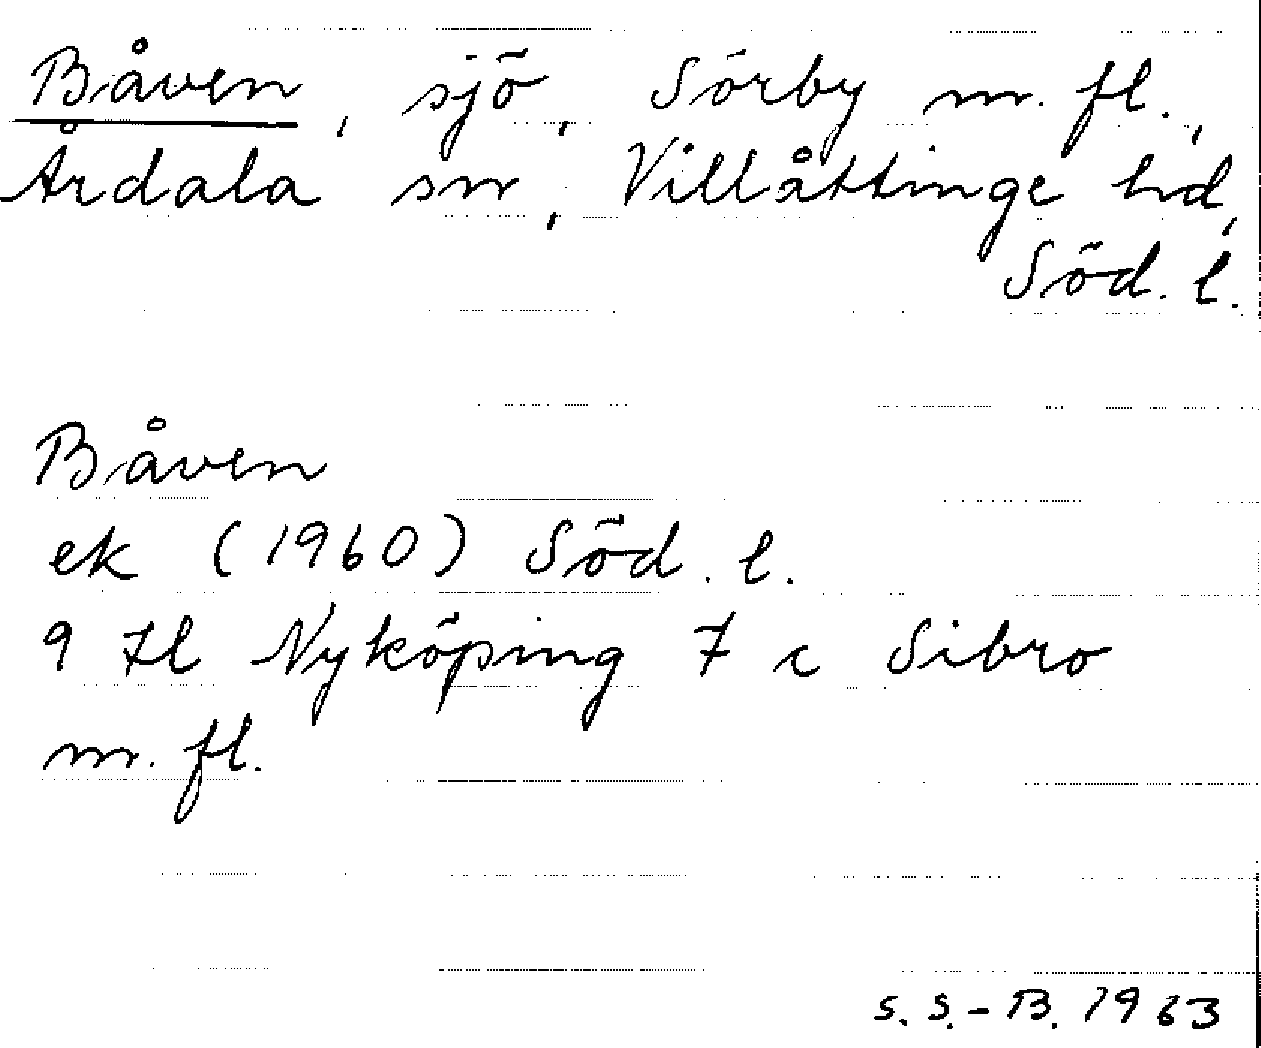 Båven, sjö, Sörby m. fl.,
Årdala sn, Villåttinge hd,
Söd. l.
Båven
ek (1960) Söd. l.
9 H Nyköping 7 c Sibro
m. fl.
S. S.-B. 1963